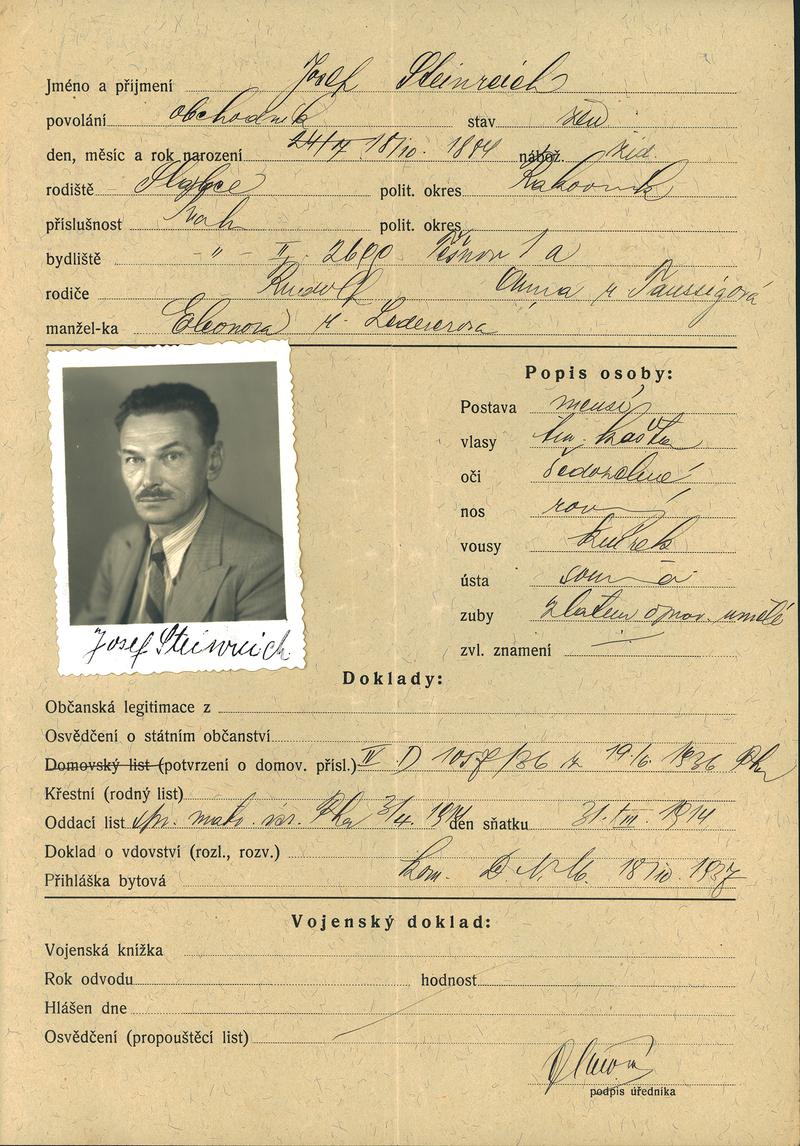 Jméno a příjmení Josef Steinreich
povolání obchodník stav žen
den, měsíc a rok narození 18/10. 1884 nábož. žid.
rodiště Slabce polit. okres Rakovník
příslušnost polit. okres
bydliště -"- II. 2600 Těšnov 1 a
rodiče Rudolf Anna r Taussigová
manžel-ka Eleonora r. Ledererová
Popis osoby:
Postava menší
vlasy tm. kašta
oči šedozelené
nos rov
vousy knírek
ústa soum á
zuby zlatem oprav. umělé
zvl. znamení
Josef Steinreich
Doklady:
Občanská legitimace z
Osvědčení o státním občanství
Domovský list (potvrzení o domov. přísl.) IV D 19/6. 1936
Křestní (rodný list)
Oddací list 3/4. den sňatku 31. III. 1914
Doklad o vdovství (rozl., rozv.)
Přihláška bytová kom. 18/10. 1937
Vojenský doklad:
Vojenská knížka
Rok odvodu hodnost
Hlášen dne
Osvědčení (propouštěcí list)
podpis úředníka